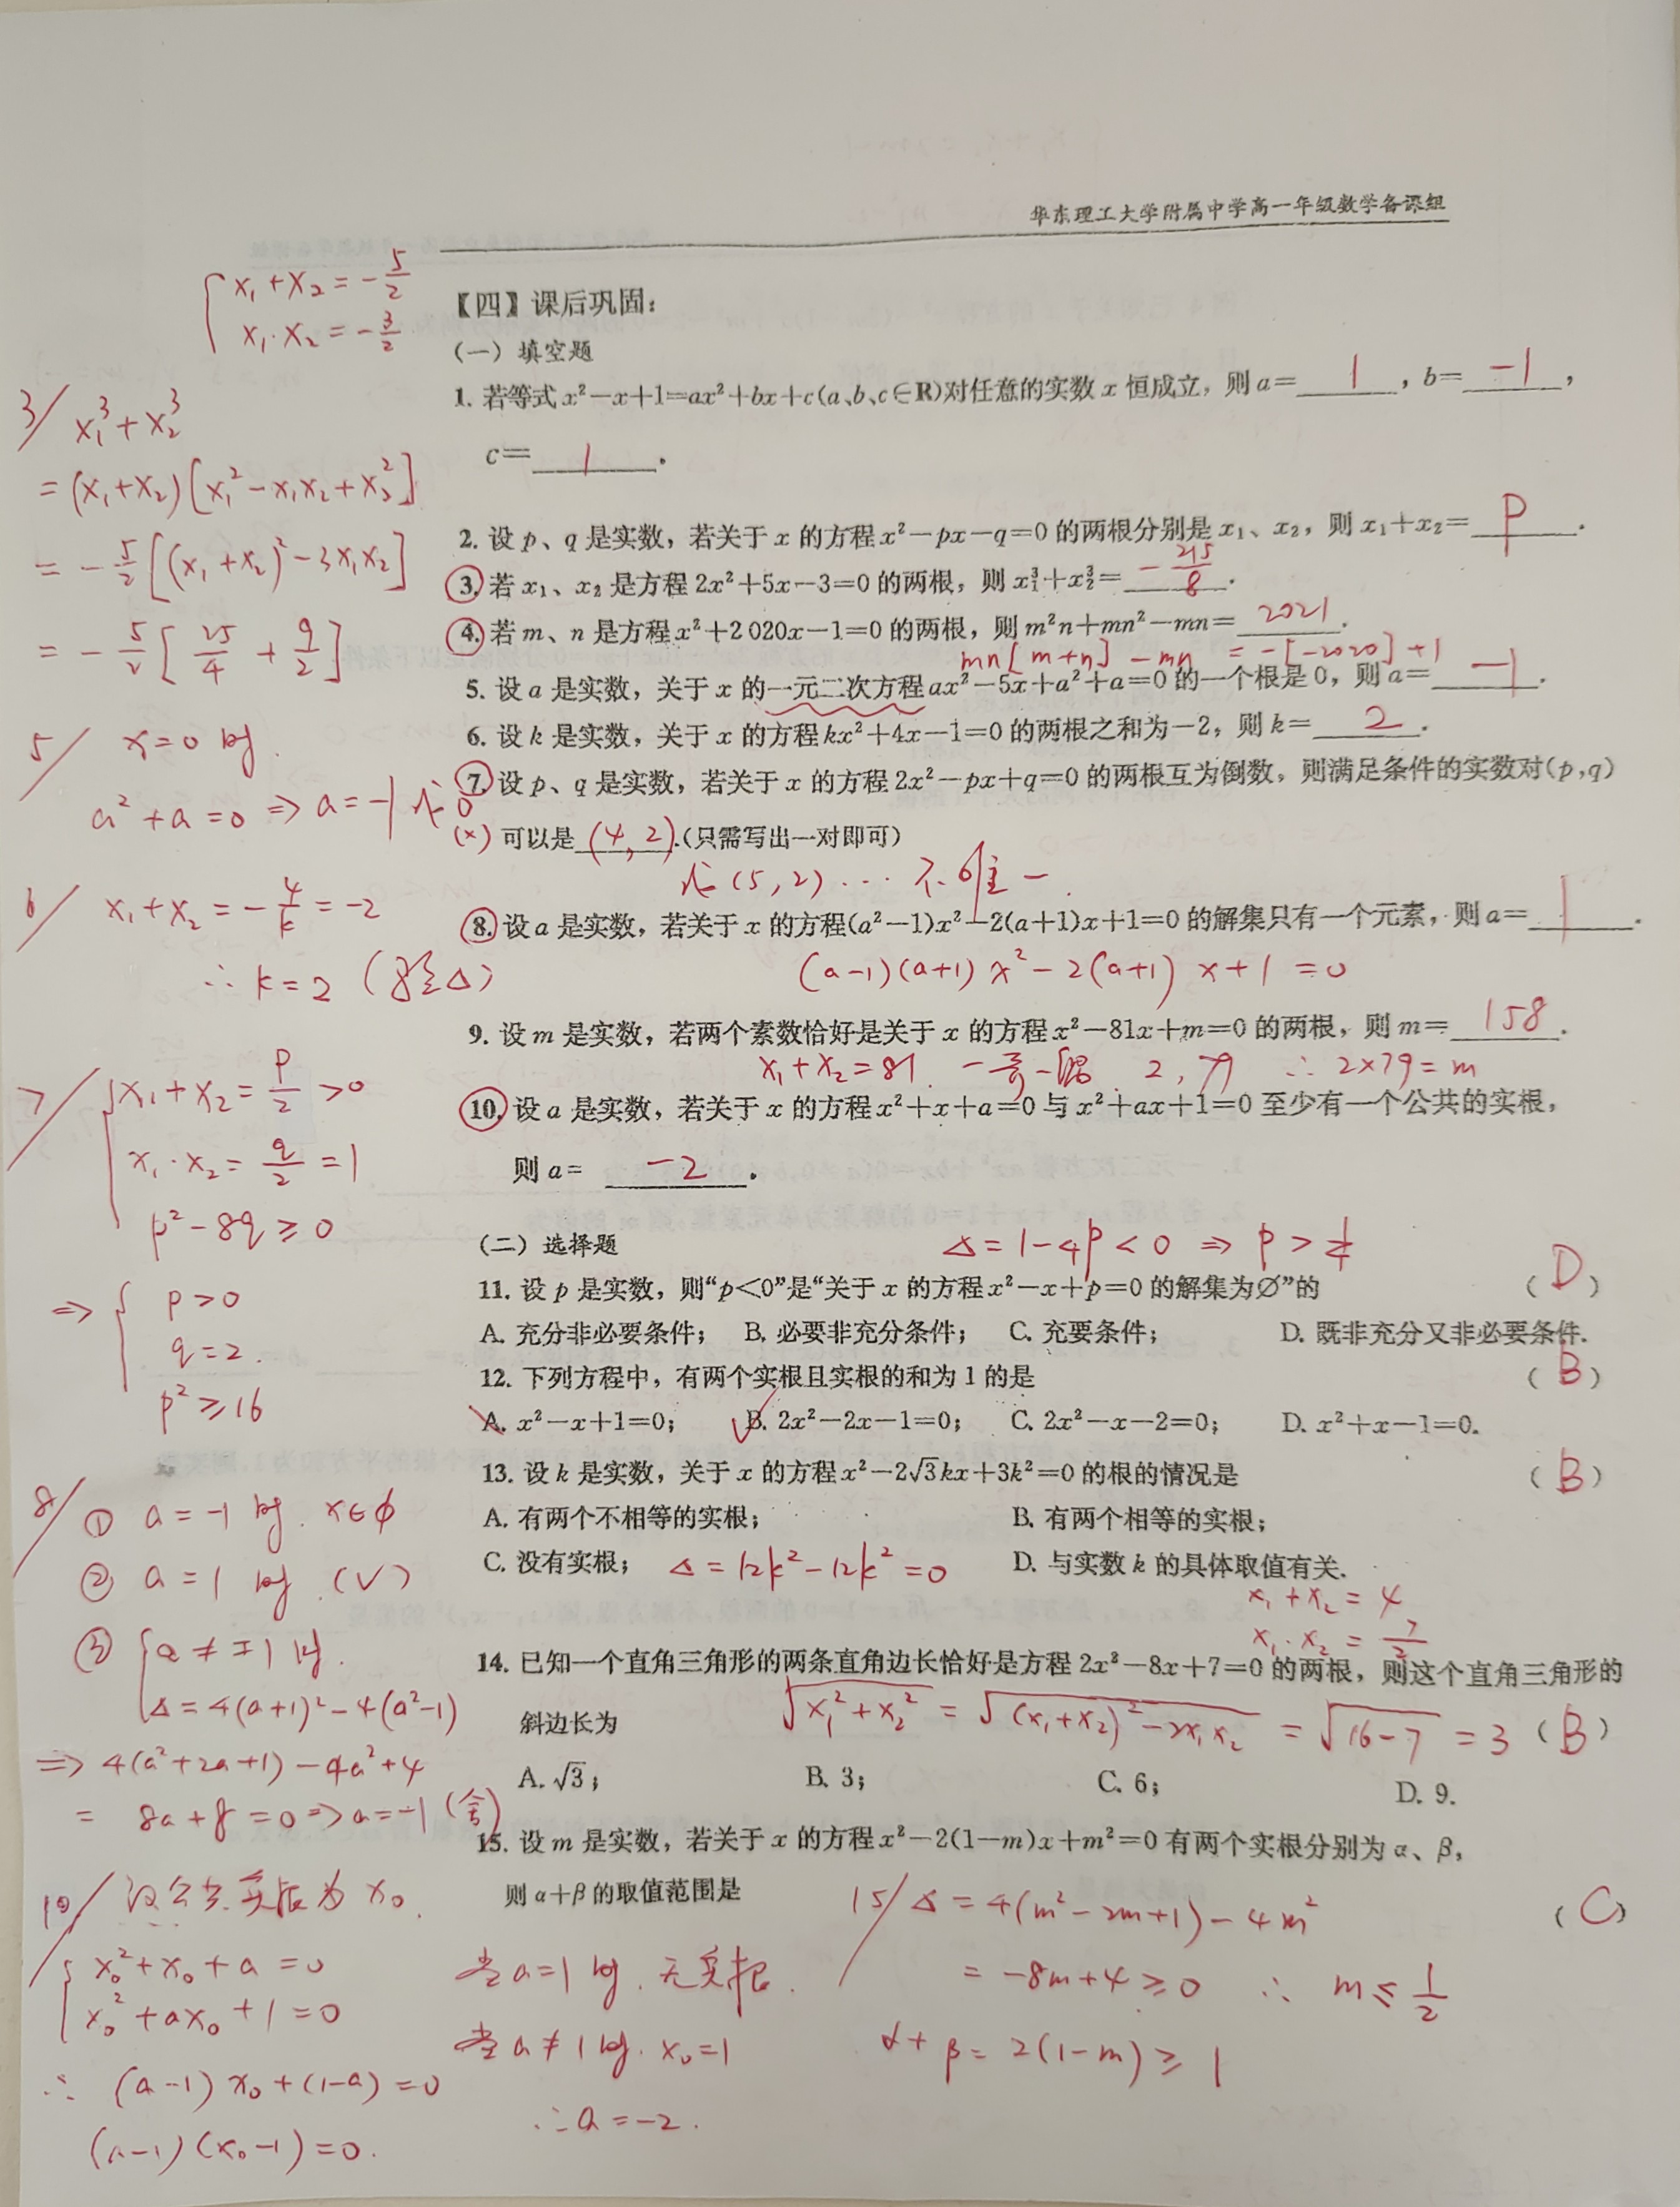 华东理工大学附属中学高一年级数学备课组
【四】课后巩固：
（一）填空题
1. 若等式 x²－x＋1＝ax²＋bx＋c(a、b、c∈R)对任意的实数 x 恒成立，则 a＝ 1 ，b＝ －1 ，
c＝ 1 ．
2. 设 p、q 是实数，若关于 x 的方程 x²－px－q＝0 的两根分别是 x₁、x₂，则 x₁＋x₂＝ p ．
3. 若 x₁、x₂ 是方程 2x²＋5x－3＝0 的两根，则 x₁³＋x₂³＝ －215/8 ．
4. 若 m、n 是方程 x²＋2 020x－1＝0 的两根，则 m²n＋mn²－mn＝ 2021 ．
mn[m+n]－mn ＝－[－2020]＋1
5. 设 a 是实数，关于 x 的一元二次方程 ax²－5x＋a²＋a＝0 的一个根是 0，则 a＝ －1 ．
6. 设 k 是实数，关于 x 的方程 kx²＋4x－1＝0 的两根之和为－2，则 k＝ 2 ．
7. 设 p、q 是实数，若关于 x 的方程 2x²－px＋q＝0 的两根互为倒数，则满足条件的实数对(p,q)
可以是 (4, 2) ．(只需写出一对即可)
或 (5, 2) … 不唯一．
8. 设 a 是实数，若关于 x 的方程(a²－1)x²－2(a＋1)x＋1＝0 的解集只有一个元素，则 a＝ 1 ．
(a－1)(a＋1)x²－2(a＋1)x＋1＝0
9. 设 m 是实数，若两个素数恰好是关于 x 的方程 x²－81x＋m＝0 的两根，则 m＝ 158 ．
x₁＋x₂＝81. 一奇一偶 2, 79 ∴ 2×79＝m
10. 设 a 是实数，若关于 x 的方程 x²＋x＋a＝0 与 x²＋ax＋1＝0 至少有一个公共的实根，
则 a＝ －2 ．
（二）选择题
Δ＝1－4p＜0 ⇒ p＞1/4
11. 设 p 是实数，则“p＜0”是“关于 x 的方程 x²－x＋p＝0 的解集为∅”的 （ D ）
A. 充分非必要条件； B. 必要非充分条件； C. 充要条件； D. 既非充分又非必要条件.
12. 下列方程中，有两个实根且实根的和为 1 的是 （ B ）
A. x²－x＋1＝0； B. 2x²－2x－1＝0； C. 2x²－x－2＝0； D. x²＋x－1＝0.
13. 设 k 是实数，关于 x 的方程 x²－2√3kx＋3k²＝0 的根的情况是 （ B ）
A. 有两个不相等的实根； B. 有两个相等的实根；
C. 没有实根； Δ＝12k²－12k²＝0 D. 与实数 k 的具体取值有关.
x₁＋x₂＝4
x₁·x₂＝7/2
14. 已知一个直角三角形的两条直角边长恰好是方程 2x²－8x＋7＝0 的两根，则这个直角三角形的
斜边长为 √(x₁²＋x₂²)＝√((x₁＋x₂)²－2x₁x₂)＝√(16－7)＝3 （ B ）
A. √3； B. 3； C. 6； D. 9.
15. 设 m 是实数，若关于 x 的方程 x²－2(1－m)x＋m²＝0 有两个实根分别为 α、β，
则 α＋β 的取值范围是 （ C ）
15/ Δ＝4(m²－2m＋1)－4m²
＝－8m＋4≥0 ∴ m≤1/2
α＋β＝2(1－m)≥1
x₁＋x₂＝－5/2
x₁·x₂＝－3/2
3/ x₁³＋x₂³
＝(x₁＋x₂)[x₁²－x₁x₂＋x₂²]
＝－5/2[(x₁＋x₂)²－3x₁x₂]
＝－5/2[25/4＋9/2]
5/ x＝0时.
a²＋a＝0 ⇒ a＝－1或0
(×)
6/ x₁＋x₂＝－4/k＝－2
∴ k＝2
7/ x₁＋x₂＝p/2＞0
x₁·x₂＝q/2＝1
p²－8q≥0
⇒ p＞0
q＝2.
p²≥16
8/ ① a＝－1时. x∈∅
② a＝1时. (√)
③ a≠±1时.
Δ＝4(a＋1)²－4(a²－1)
⇒ 4(a²＋2a＋1)－4a²＋4
＝ 8a＋8＝0 ⇒ a＝－1 (舍)
10/ 设公共实根为 x₀.
x₀²＋x₀＋a＝0
x₀²＋ax₀＋1＝0
∴ (a－1)x₀＋(1－a)＝0
(a－1)(x₀－1)＝0.
当a＝1时. 无实根.
当a≠1时. x₀＝1
∴ a＝－2.